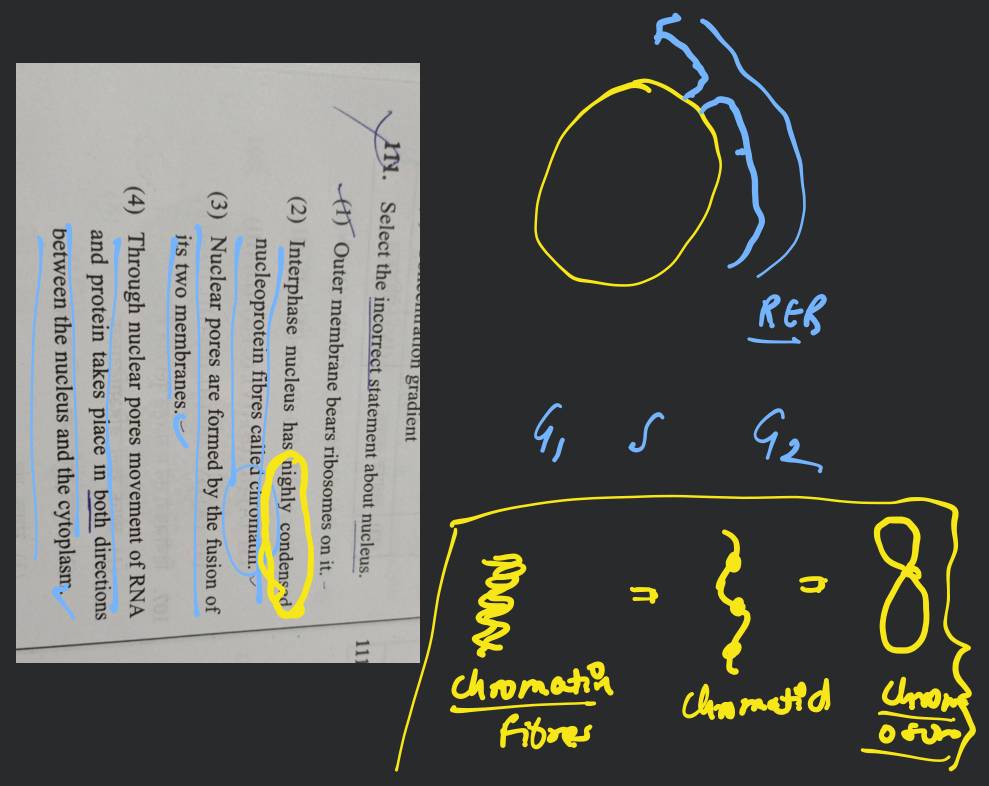 concentration gradient
111. Select the incorrect statement about nucleus.
(1) Outer membrane bears ribosomes on it.
(2) Interphase nucleus has highly condensed
nucleoprotein fibres called chromatin.
(3) Nuclear pores are formed by the fusion of
its two membranes.
(4) Through nuclear pores movement of RNA
and protein takes place in both directions
between the nucleus and the cytoplasm.
RER
G1 S G2
=
=
Chromatin
Fibres
Chromatid
Chrom
osom